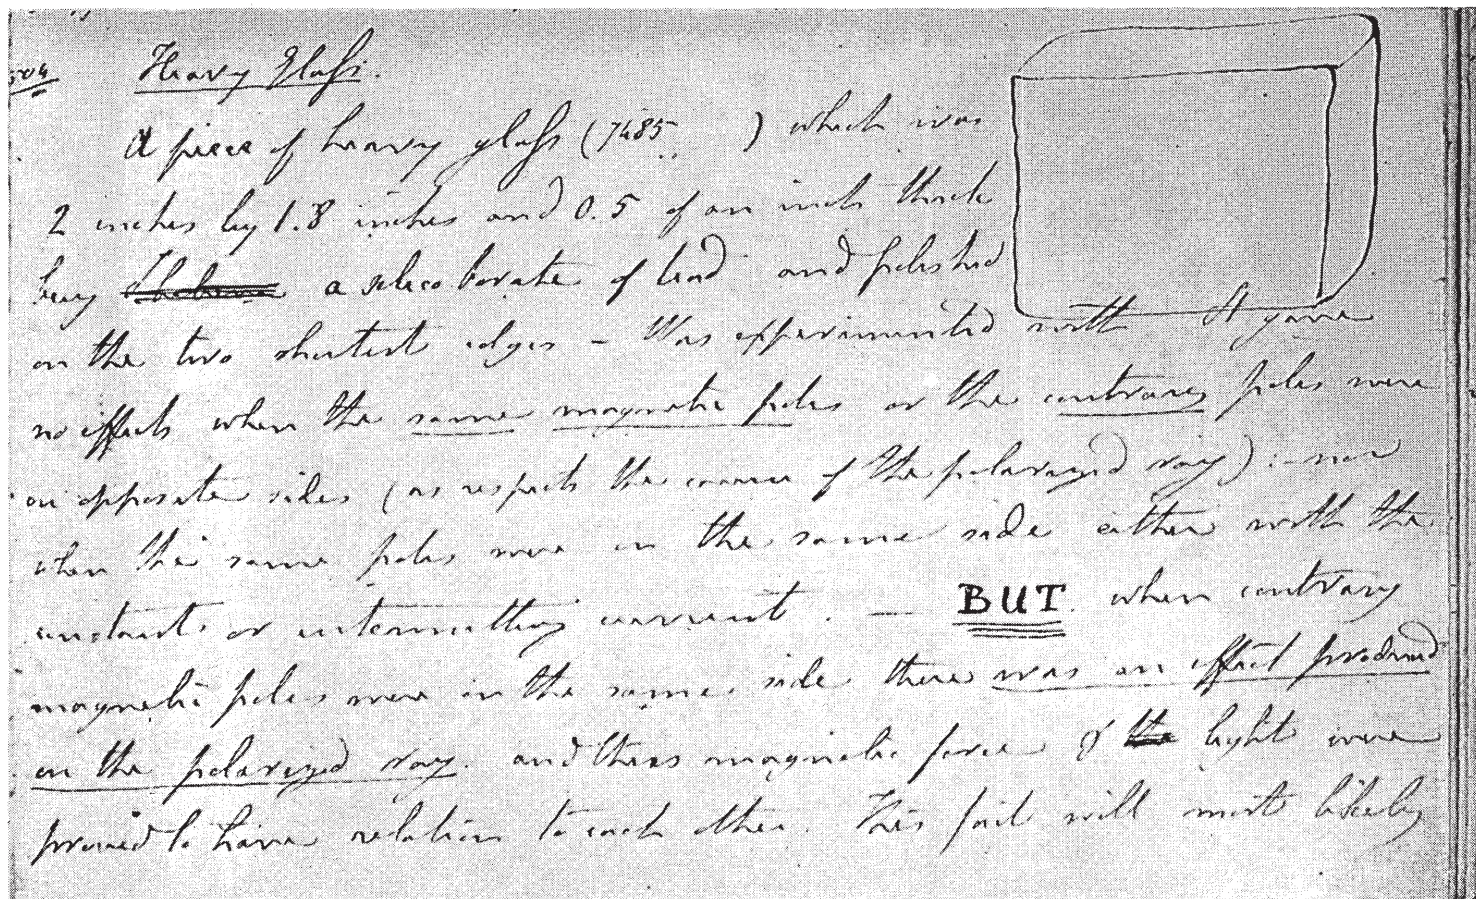 504 Heavy Glass.
A piece of heavy glass (7485 ) which was
2 inches by 1.8 inches and 0.5 of an inch thick
being a silico borate of lead and polished
on the two shortest edges - Was experimented with It gave
no effects when the same magnetic poles or the contrary poles were
on opposite sides (as respects the course of the polarized ray) :- nor
when the same poles were on the same side either with the
constant or intermitting current. — BUT when contrary
magnetic poles were on the same side there was an effect produced
on the polarized ray. and thus magnetic force & light were
proved to have relation to each other. This fact will most likely